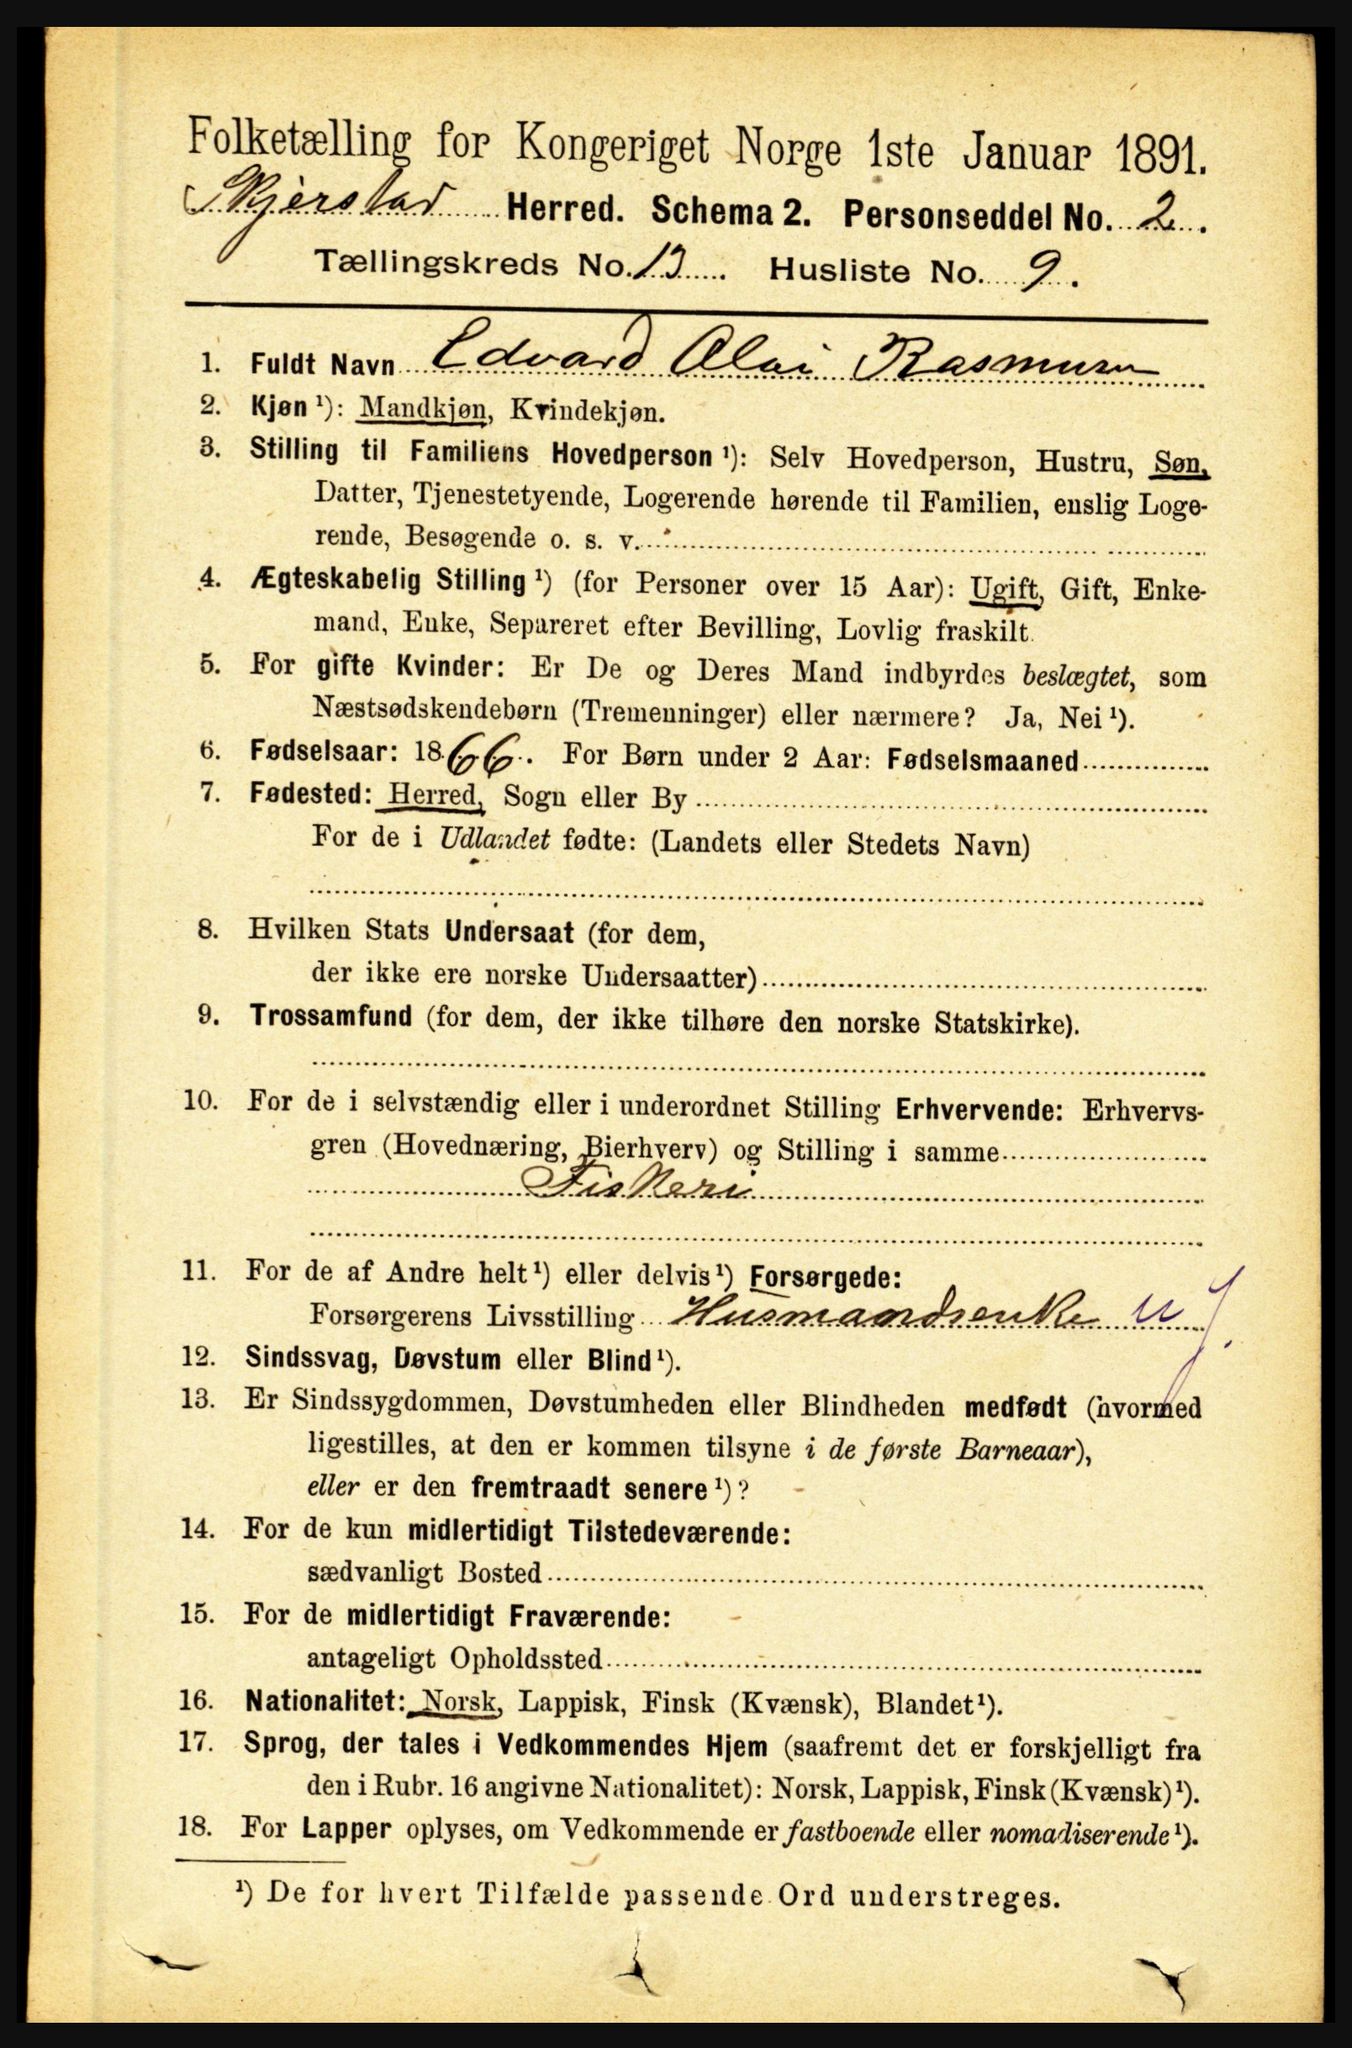 Folketælling for Kongeriget Norge 1ste Januar 1891.
Skjerstad Herred. Schema 2. Personseddel No. 2.
Tællingskreds No. 13. Husliste No. 9.
1. Fuldt Navn Edvard Olai Rasmusen
2. Kjøn ¹): Mandkjøn, Kvindekjøn.
3. Stilling til Familiens Hovedperson ¹): Selv Hovedperson, Hustru, Søn,
Datter, Tjenestetyende, Logerende hørende til Familien, enslig Loge-
rende, Besøgende o. s. v.
4. Ægteskabelig Stilling ¹) (for Personer over 15 Aar): Ugift, Gift, Enke-
mand, Enke, Separeret efter Bevilling, Lovlig fraskilt.
5. For gifte Kvinder: Er De og Deres Mand indbyrdes beslægtet, som
Næstsødskendebørn (Tremenninger) eller nærmere? Ja, Nei ¹).
6. Fødselsaar: 1866. For Børn under 2 Aar: Fødselsmaaned
7. Fødested: Herred, Sogn eller By
For de i Udlandet fødte: (Landets eller Stedets Navn)
8. Hvilken Stats Undersaat (for dem,
der ikke ere norske Undersaatter)
9. Trossamfund (for dem, der ikke tilhøre den norske Statskirke).
10. For de i selvstændig eller i underordnet Stilling Erhvervende: Erhvervs-
gren (Hovednæring, Bierhverv) og Stilling i samme
Fiskeri
11. For de af Andre helt ¹) eller delvis ¹) Forsørgede:
Forsørgerens Livsstilling Husmandsenke
12. Sindssvag, Døvstum eller Blind ¹).
13. Er Sindssygdommen, Døvstumheden eller Blindheden medfødt (hvormed
ligestilles, at den er kommen tilsyne i de første Barneaar),
eller er den fremtraadt senere ¹)?
14. For de kun midlertidigt Tilstedeværende:
sædvanligt Bosted
15. For de midlertidigt Fraværende:
antageligt Opholdssted
16. Nationalitet: Norsk, Lappisk, Finsk (Kvænsk), Blandet ¹).
17. Sprog, der tales i Vedkommendes Hjem (saafremt det er forskjelligt fra
den i Rubr. 16 angivne Nationalitet): Norsk, Lappisk, Finsk (Kvænsk) ¹).
18. For Lapper oplyses, om Vedkommende er fastboende eller nomadiserende ¹).
¹) De for hvert Tilfælde passende Ord understreges.